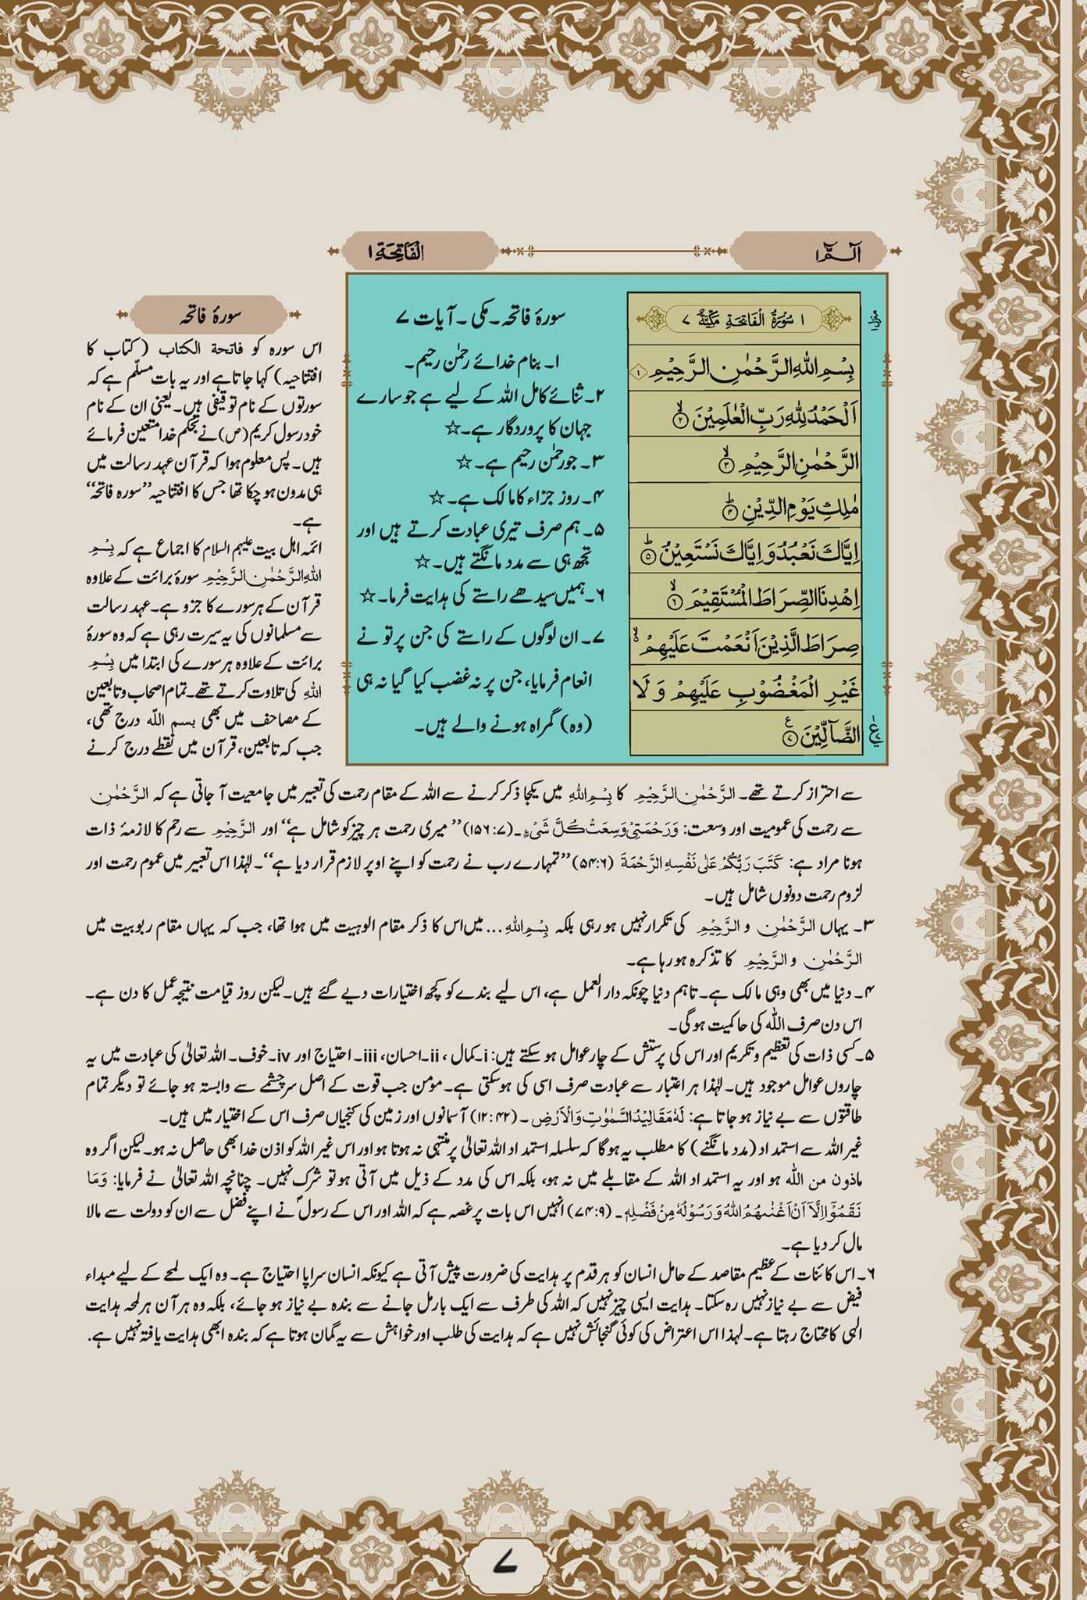 الٓـمّٓ ۱
اَلْفَاتِحَةِ ۱
۱ سُوْرَةُ الْفَاتِحَةِ مَكِّيَّةٌ ۷
بِسْمِ اللّٰهِ الرَّحْمٰنِ الرَّحِيْمِ ۱
اَلْحَمْدُ لِلّٰهِ رَبِّ الْعٰلَمِيْنَ ۲
الرَّحْمٰنِ الرَّحِيْمِ ۳
مٰلِكِ يَوْمِ الدِّيْنِ ۴
اِيَّاكَ نَعْبُدُ وَ اِيَّاكَ نَسْتَعِيْنُ ۵
اِهْدِنَا الصِّرَاطَ الْمُسْتَقِيْمَ ۶
صِرَاطَ الَّذِيْنَ اَنْعَمْتَ عَلَيْهِمْ
غَيْرِ الْمَغْضُوْبِ عَلَيْهِمْ وَ لَا
الضَّآلِّيْنَ ۷
سورۂ فاتحہ۔ مکی۔ آیات ۷
۱۔ بنام خدائے رحمٰن رحیم۔
۲۔ ثنائے کامل اللہ کے لیے ہے جو سارے
جہان کا پروردگار ہے۔☆
۳۔ جو رحمٰن رحیم ہے۔☆
۴۔ روز جزاء کا مالک ہے۔☆
۵۔ ہم صرف تیری عبادت کرتے ہیں اور
تجھ ہی سے مدد مانگتے ہیں۔☆
۶۔ ہمیں سیدھے راستے کی ہدایت فرما۔☆
۷۔ ان لوگوں کے راستے کی جن پر تو نے
انعام فرمایا، جن پر نہ غضب کیا گیا نہ ہی
(وہ) گمراہ ہونے والے ہیں۔
سورۂ فاتحہ
اس سورہ کو فاتحة الكتاب (کتاب کا
افتتاحیہ) کہا جاتا ہے اور یہ بات مسلّم ہے کہ
سورتوں کے نام توقیفی ہیں۔ یعنی ان کے نام
خود رسول کریم (ص) نے بحکم خدا متعین فرمائے
ہیں۔ پس معلوم ہوا کہ قرآن عہد رسالت میں
ہی مدون ہو چکا تھا جس کا افتتاحیہ ”سورہ فاتحہ“
ہے۔
ائمہ اہل بیت علیہم السلام کا اجماع ہے کہ بِسْمِ
اللّٰهِ الرَّحْمٰنِ الرَّحِيْمِ سورۂ برائت کے علاوہ
قرآن کے ہر سورے کا جزو ہے۔ عہد رسالت
سے مسلمانوں کی یہ سیرت رہی ہے کہ وہ سورۂ
برائت کے علاوہ ہر سورے کی ابتدا میں بِسْمِ
اللّٰهِ کی تلاوت کرتے تھے۔ تمام اصحاب و تابعین
کے مصاحف میں بھی بسم اللّٰہ درج تھی،
جب کہ تابعین، قرآن میں نقطے درج کرنے
سے احتراز کرتے تھے۔ الرَّحْمٰنِ الرَّحِيْمِ کا بِسْمِ اللّٰهِ میں یکجا ذکر کرنے سے اللہ کے مقام رحمت کی تعبیر میں جامعیت آ جاتی ہے کہ الرَّحْمٰنِ
سے رحمت کی عمومیت اور وسعت: وَرَحْمَتِيْ وَسِعَتْ كُلَّ شَيْءٍ۔ (۷:۱۵۶) ”میری رحمت ہر چیز کو شامل ہے“ اور الرَّحِيْمِ سے رحم کا لازمۂ ذات
ہونا مراد ہے: كَتَبَ رَبُّكُمْ عَلٰى نَفْسِهِ الرَّحْمَةَ (۶:۵۴) ”تمہارے رب نے رحمت کو اپنے اوپر لازم قرار دیا ہے“۔ لہٰذا اس تعبیر میں عموم رحمت اور
لزوم رحمت دونوں شامل ہیں۔
۳۔ یہاں الرَّحْمٰنِ و الرَّحِيْمِ کی تکرار نہیں ہو رہی بلکہ بِسْمِ اللّٰهِ... میں اس کا ذکر مقام الوہیت میں ہوا تھا، جب کہ یہاں مقام ربوبیت میں
الرَّحْمٰنِ و الرَّحِيْمِ کا تذکرہ ہو رہا ہے۔
۴۔ دنیا میں بھی وہی مالک ہے۔ تاہم دنیا چونکہ دار العمل ہے، اس لیے بندے کو کچھ اختیارات دیے گئے ہیں۔ لیکن روز قیامت نتیجہ عمل کا دن ہے۔
اس دن صرف اللّٰہ کی حاکمیت ہو گی۔
۵۔ کسی ذات کی تعظیم و تکریم اور اس کی پرستش کے چار عوامل ہو سکتے ہیں: i۔ کمال، ii۔ احسان، iii۔ احتیاج اور iv۔ خوف۔ اللہ تعالیٰ کی عبادت میں یہ
چاروں عوامل موجود ہیں۔ لہٰذا ہر اعتبار سے عبادت صرف اسی کی ہو سکتی ہے۔ مؤمن جب قوت کے اصل سرچشمے سے وابستہ ہو جائے تو دیگر تمام
طاقتوں سے بے نیاز ہو جاتا ہے: لَهٗ مَقَالِيْدُ السَّمٰوٰتِ وَالْاَرْضِ۔ (۴۲:۱۲) آسمانوں اور زمین کی کنجیاں صرف اس کے اختیار میں ہیں۔
غیر اللّٰہ سے استمداد (مدد مانگنے) کا مطلب یہ ہو گا کہ سلسلہ استمداد اللّٰہ تعالیٰ پر منتہی نہ ہوتا ہو اور اس غیر اللّٰہ کو اذن خدا بھی حاصل نہ ہو۔ لیکن اگر وہ
ماذون من اللّٰہ ہو اور یہ استمداد اللہ کے مقابلے میں نہ ہو، بلکہ اس کی مدد کے ذیل میں آتی ہو تو شرک نہیں۔ چنانچہ اللہ تعالیٰ نے فرمایا: وَمَا
نَقَمُوْٓا اِلَّآ اَنْ اَغْنٰىهُمُ اللّٰهُ وَ رَسُوْلُهٗ مِنْ فَضْلِهٖ۔ (۹:۷۴) انہیں اس بات پر غصہ ہے کہ اللہ اور اس کے رسولؐ نے اپنے فضل سے ان کو دولت سے مالا
مال کر دیا ہے۔
۶۔ اس کائنات کے عظیم مقاصد کے حامل انسان کو ہر قدم پر ہدایت کی ضرورت پیش آتی ہے کیونکہ انسان سراپا احتیاج ہے۔ وہ ایک لمحے کے لیے مبداء
فیض سے بے نیاز نہیں رہ سکتا۔ ہدایت ایسی چیز نہیں کہ اللہ کی طرف سے ایک بار مل جانے سے بندہ بے نیاز ہو جائے، بلکہ وہ ہر آن ہر لمحہ ہدایت
الٰہی کا محتاج رہتا ہے۔ لہذا اس اعتراض کی کوئی گنجائش نہیں ہے کہ ہدایت کی طلب اور خواہش سے یہ گمان ہوتا ہے کہ بندہ ابھی ہدایت یافتہ نہیں ہے۔
۷